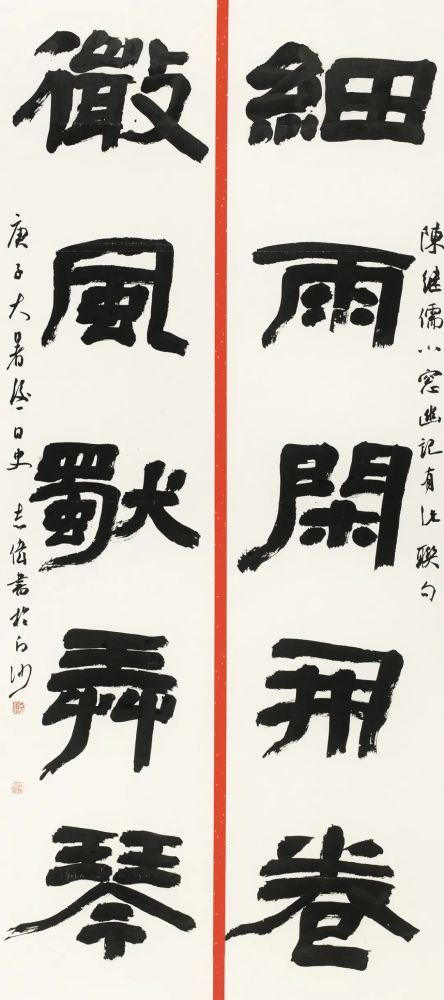 陳继儒小窓幽記有此聯句
細雨閑開卷
微風獨弄琴
庚子大暑後一日史志偉書於白沙